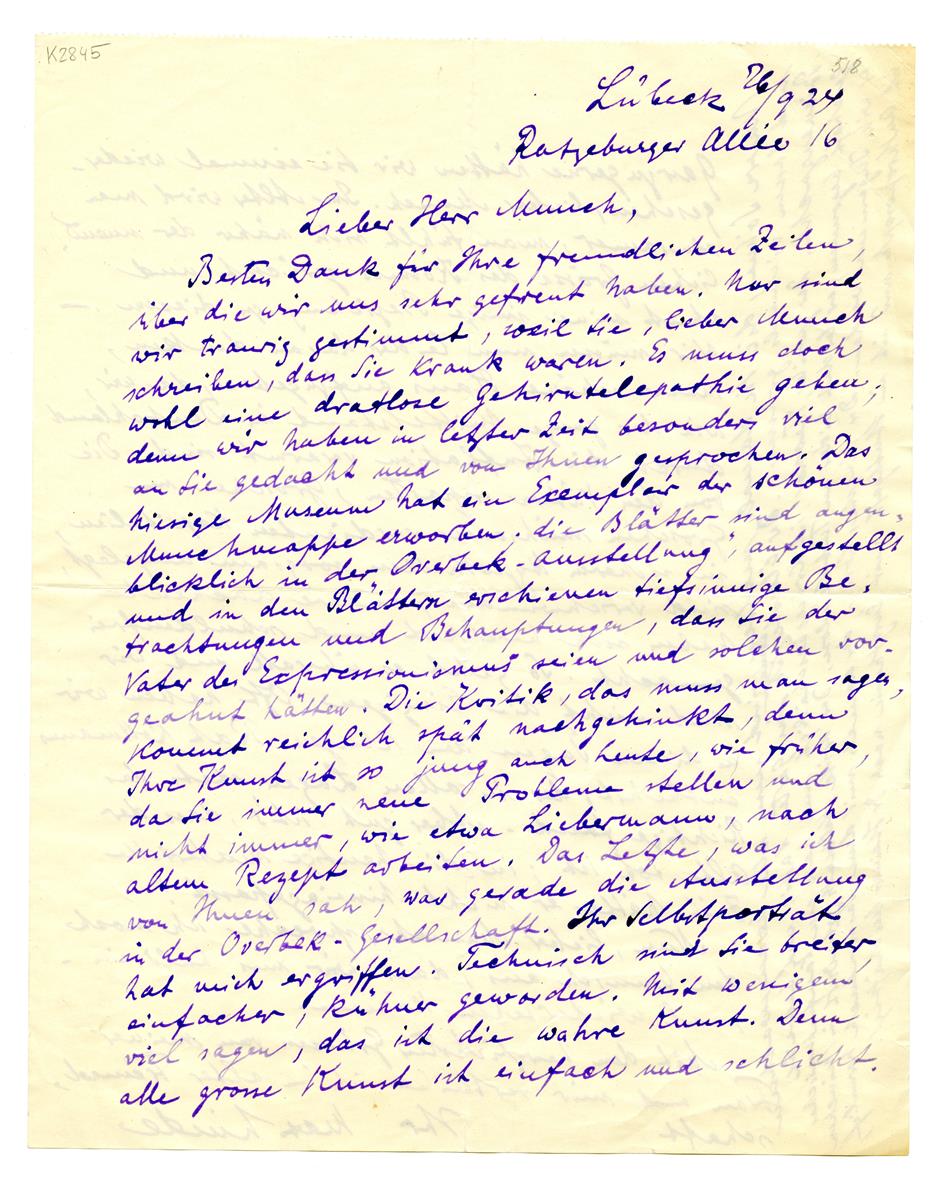 K2845
518
Lübeck 26/9 24
Ratzeburger Allée 16
Lieber Herr Munch,
Besten Dank für Ihre freundlichen Zeilen,
über die wir uns sehr gefreut haben. Nur sind
wir traurig gestimmt, weil Sie, lieber Munch
schreiben, dass Sie krank waren. Es muss doch
wohl eine dratlose Gehirntelepathie geben,
denn wir haben in letzter Zeit besonders viel
an Sie gedacht und von Ihnen gesprochen. Das
hiesige Museum hat ein Exemplar der schönen
Munchmappe erworben. die Blätter sind augen-
blicklich in der Overbek-ausstellung", aufgestellt
und in den Blättern erschienen tiefsinnige Be-
trachtungen und Behauptungen, dass Sie der
Vater des Expressionismus seien und solchen vor-
geahnt hätten. Die Kritik, das muss man sagen,
kommt reichlich spät nachgehinkt, denn
Ihre Kunst ist so jung auch heute, wie früher,
da Sie immer neue Probleme stellen und
nicht immer, wie etwa Liebermann, nach
altem Rezept arbeiten. Das Letzte, was ich
von Ihnen sah, war gerade die Ausstellung
in der Overbek-Gesellschaft. Ihr Selbstporträt
hat mich ergriffen. Technisch sind Sie breiter,
einfacher, kühner geworden. Mit wenigem
viel sagen, das ist die wahre Kunst. Denn
alle grosse Kunst ist einfach und schlicht.